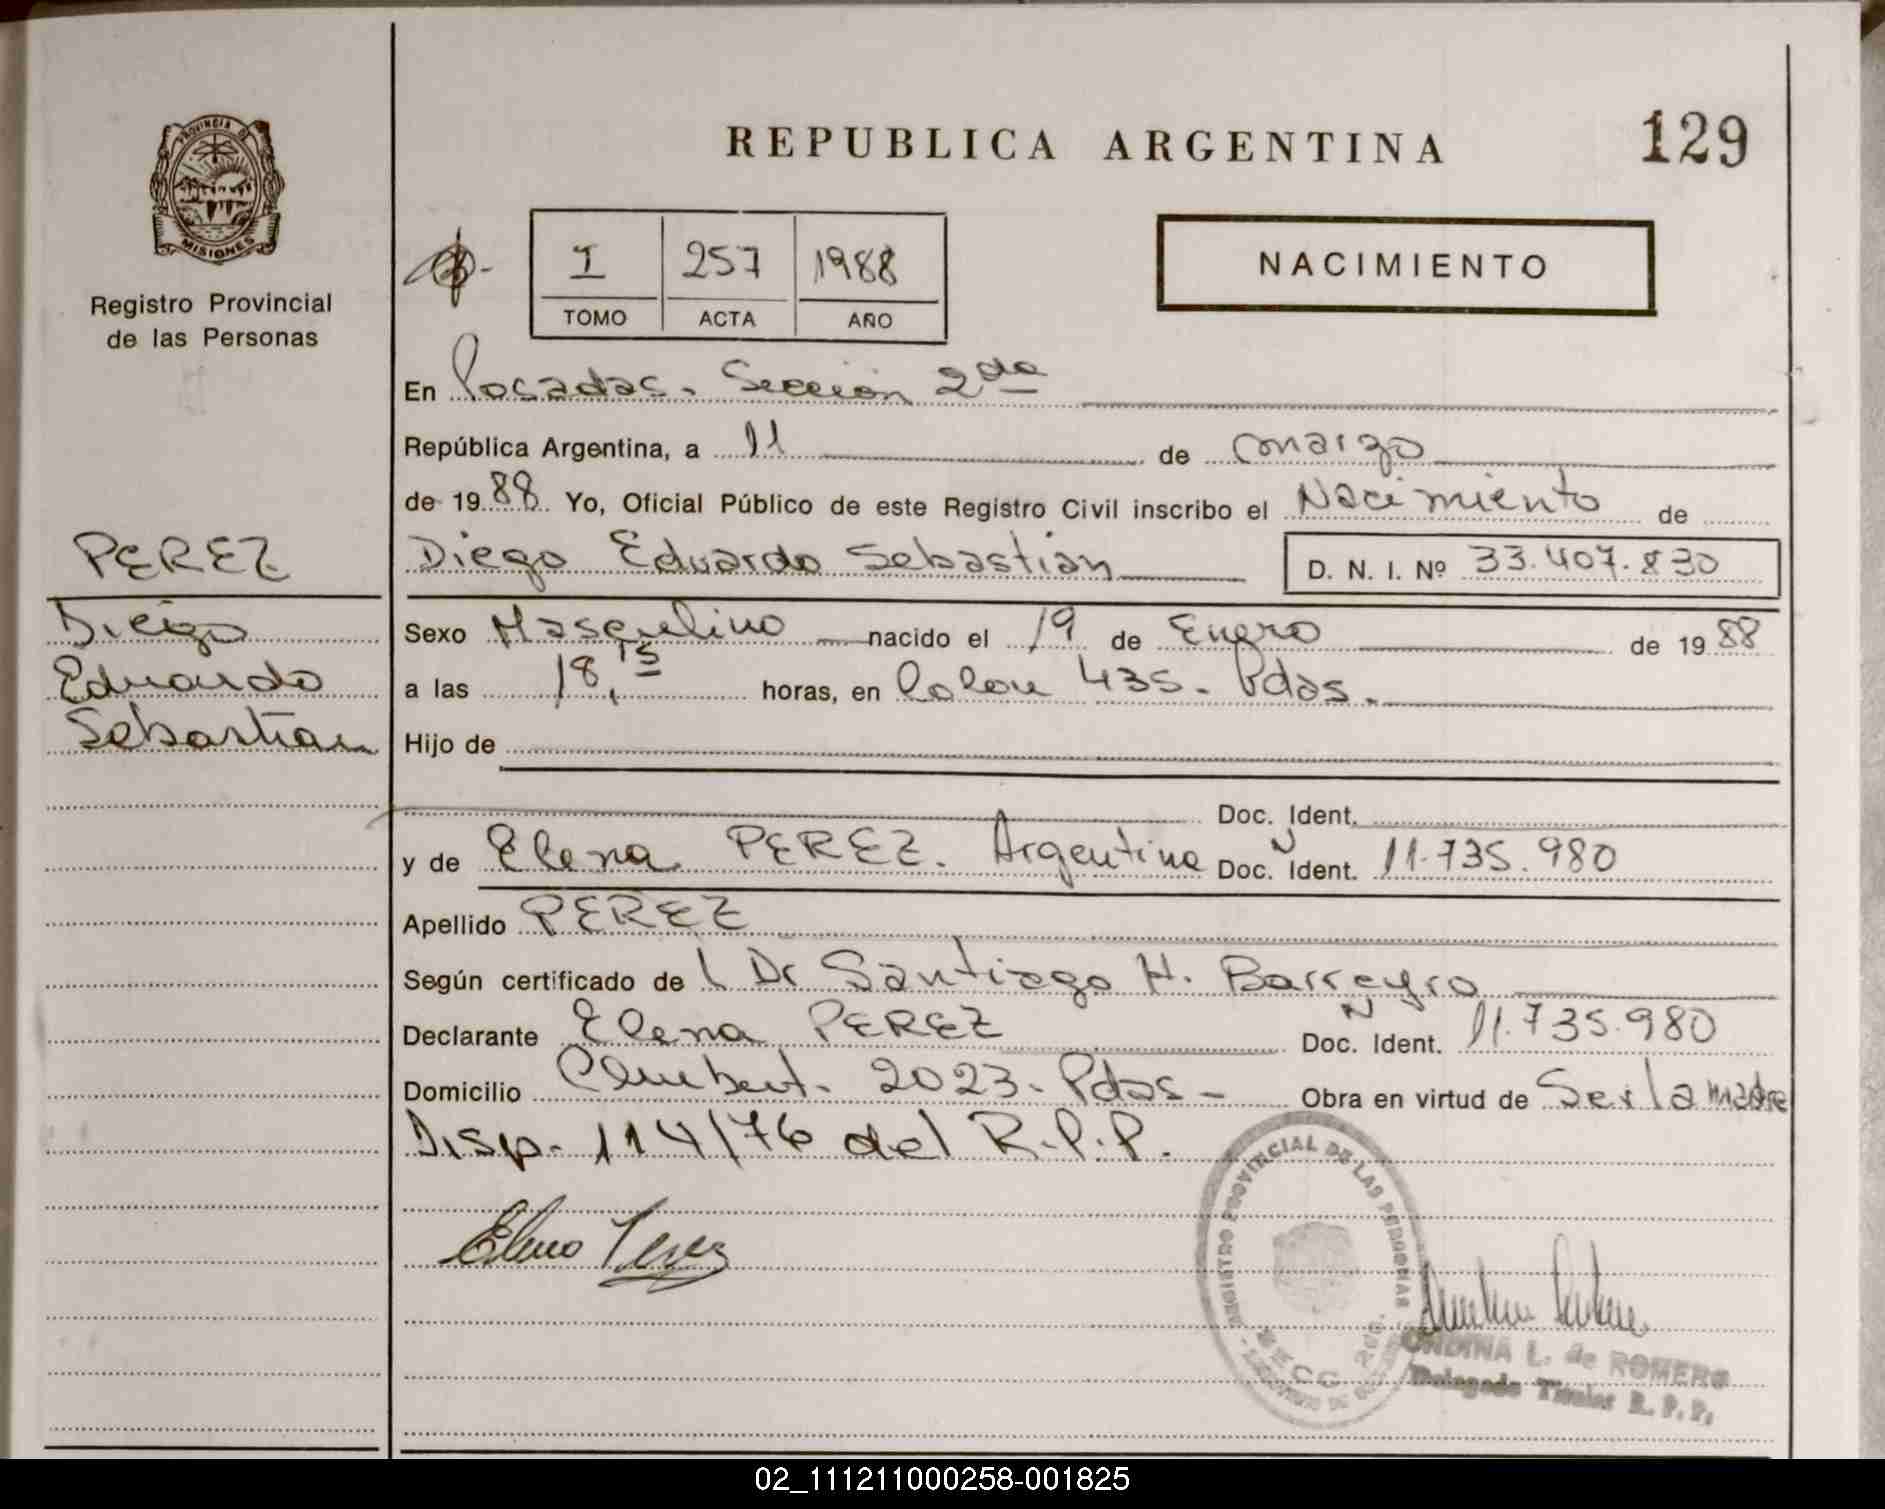 REPUBLICA ARGENTINA
129
PROVINCIA DE
MISIONES
Registro Provincial
de las Personas
I 257 1988
TOMO ACTA AÑO
NACIMIENTO
En Posadas. Sección 2da
República Argentina, a 11 de marzo
de 1988 Yo, Oficial Público de este Registro Civil inscribo el Nacimiento de
PEREZ
Diego Eduardo Sebastián D. N. I. Nº 33.407.830
Diego
Eduardo
Sebastian
Sexo Masculino nacido el 19 de Enero de 1988
a las 18,15 horas, en Colon 435. Pdas.
Hijo de
Doc. Ident.
y de Elena PEREZ. Argentina Doc. N Ident. 11.735.980
Apellido PEREZ
Según certificado de l Dr Santiago H. Barreyro
Declarante Elena PEREZ Doc. N Ident. 11.735.980
Domicilio 2023. Pdas - Obra en virtud de Ser la madre
Disp. 114/76 del R.P.P.
Elena Perez
REGISTRO PROVINCIAL DE LAS PERSONAS
SECC. 2da.
ONDINA L. de ROMERO
Delegada Titular R. P. P.
02_111211000258-001825